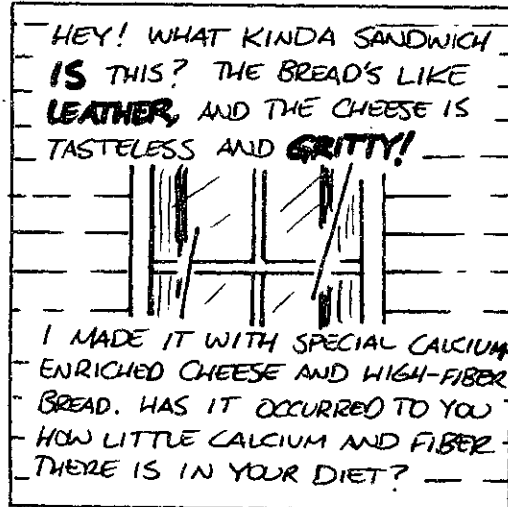 HEY! WHAT KINDA SANDWICH
IS THIS? THE BREAD'S LIKE
LEATHER, AND THE CHEESE IS
TASTELESS AND GRITTY!
I MADE IT WITH SPECIAL CALCIUM
ENRICHED CHEESE AND HIGH-FIBER
BREAD. HAS IT OCCURRED TO YOU
HOW LITTLE CALCIUM AND FIBER
THERE IS IN YOUR DIET?